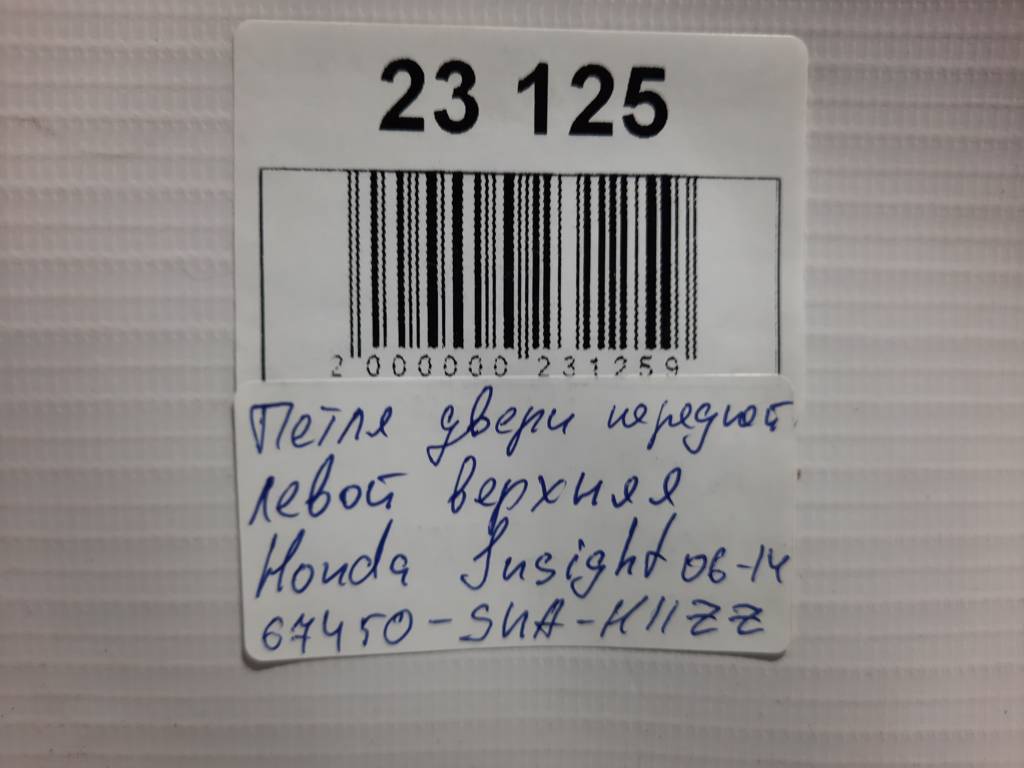 23 125
2 000000 231259
Петля двери передной
левой верхняя
Honda Insight 06-14
67450-SNA-H11ZZ